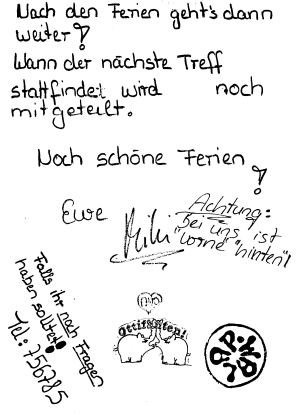 Nach den Ferien geht's dann
weiter!
Wann der nächste Treff
stattfindet wird noch
mitgeteilt.
Noch schöne Ferien!
Eure
Miki
Achtung:
Bei uns ist
"vorne "hinten"!
Falls ihr noch Fragen
haben solltet!
Tel: 756785
Ottifanten!